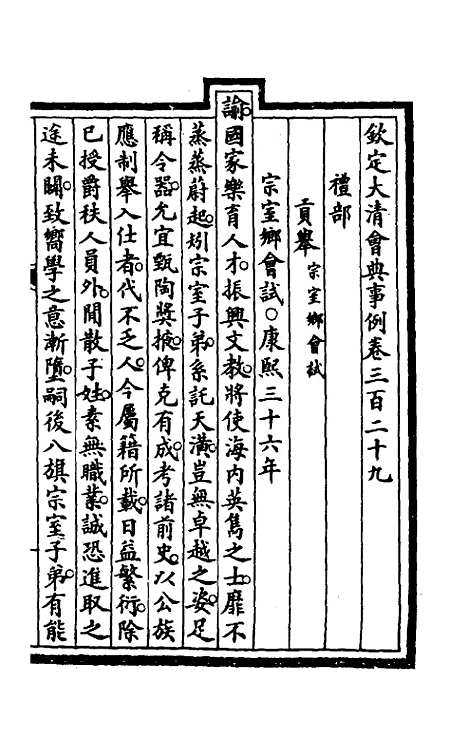 欽定大清會典事例卷三百二十九
禮部
貢舉宗室鄉會試
宗室鄉會試○康熙三十六年
諭國家樂育人才。振興文教。將使海內英雋之士。靡不
蒸蒸蔚起。矧宗室子弟。系託天潢。豈無卓越之姿。足
稱令器。允宜甄陶獎掖。俾克有成。考諸前史。以公族
應制舉入仕者。代不乏人。今屬籍所載。日益繁衍。除
已授爵秩人員外。閒散子姪。素無職業。誠恐進取之
途未闢。致嚮學之意漸墮。嗣後八旗宗室子弟。有能